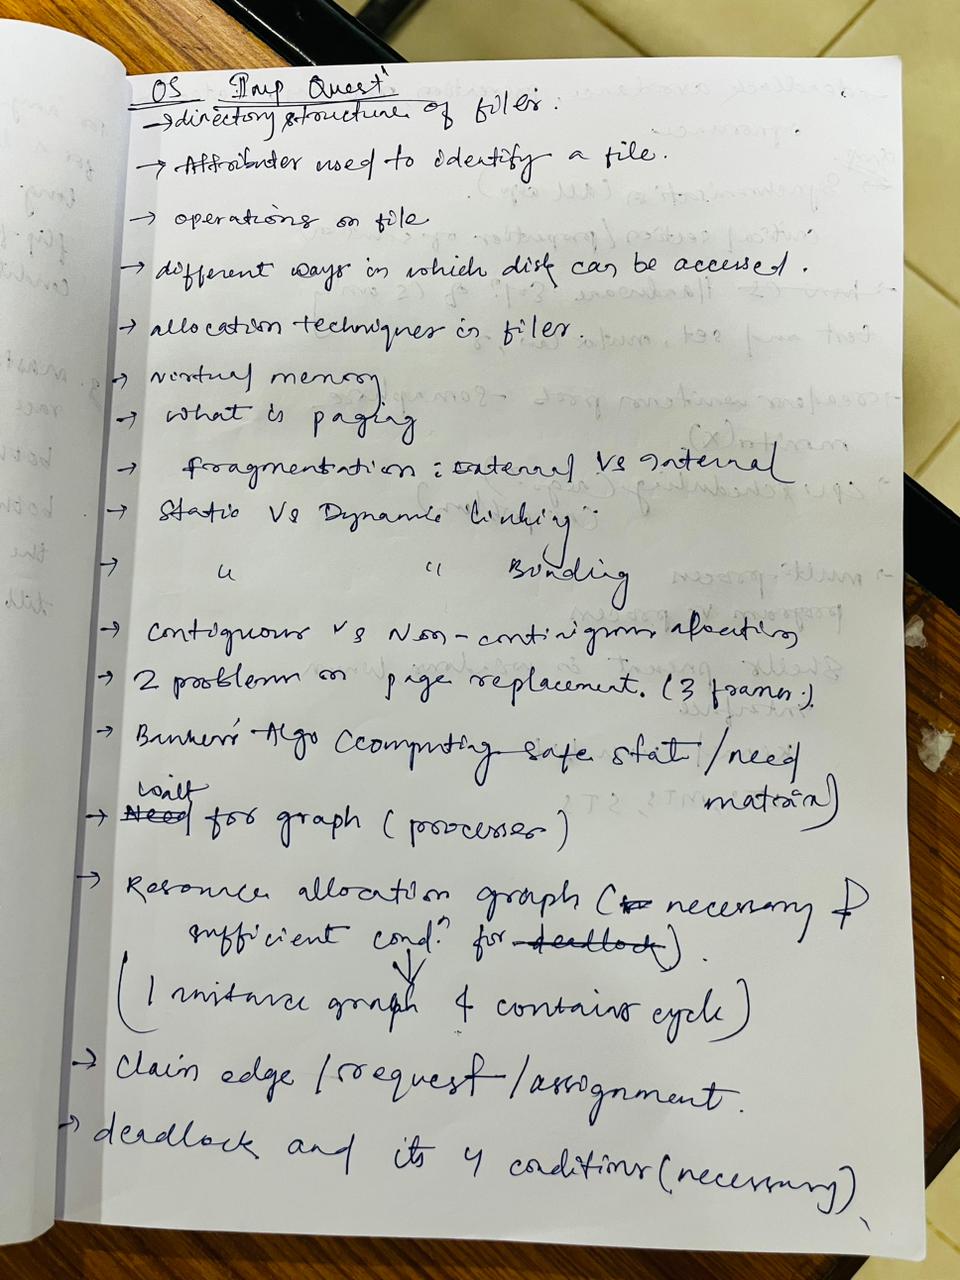 OS Imp Quest
→ directory structure of files.
→ Attributes used to identify a file.
→ operations on file
→ different ways in which disk can be accessed.
→ allocation techniques in files.
→ virtual memory
→ what is paging
→ fragmentation: External vs Internal
→ Static vs Dynamic linking
→ " " Binding
→ contiguous vs Non-contiguous allocation
→ 2 problems on page replacement. (3 frames.)
→ Banker's Algo (computing safe stat / need
matrix)
wait
→ Need for graph (processes)
→ Resource allocation graph ( necessary &
sufficient cond.n for deadlock).
(1 instance graph & contains cycle)
→ claim edge / request / assignment.
→ deadlock and its 4 conditions (necessary)